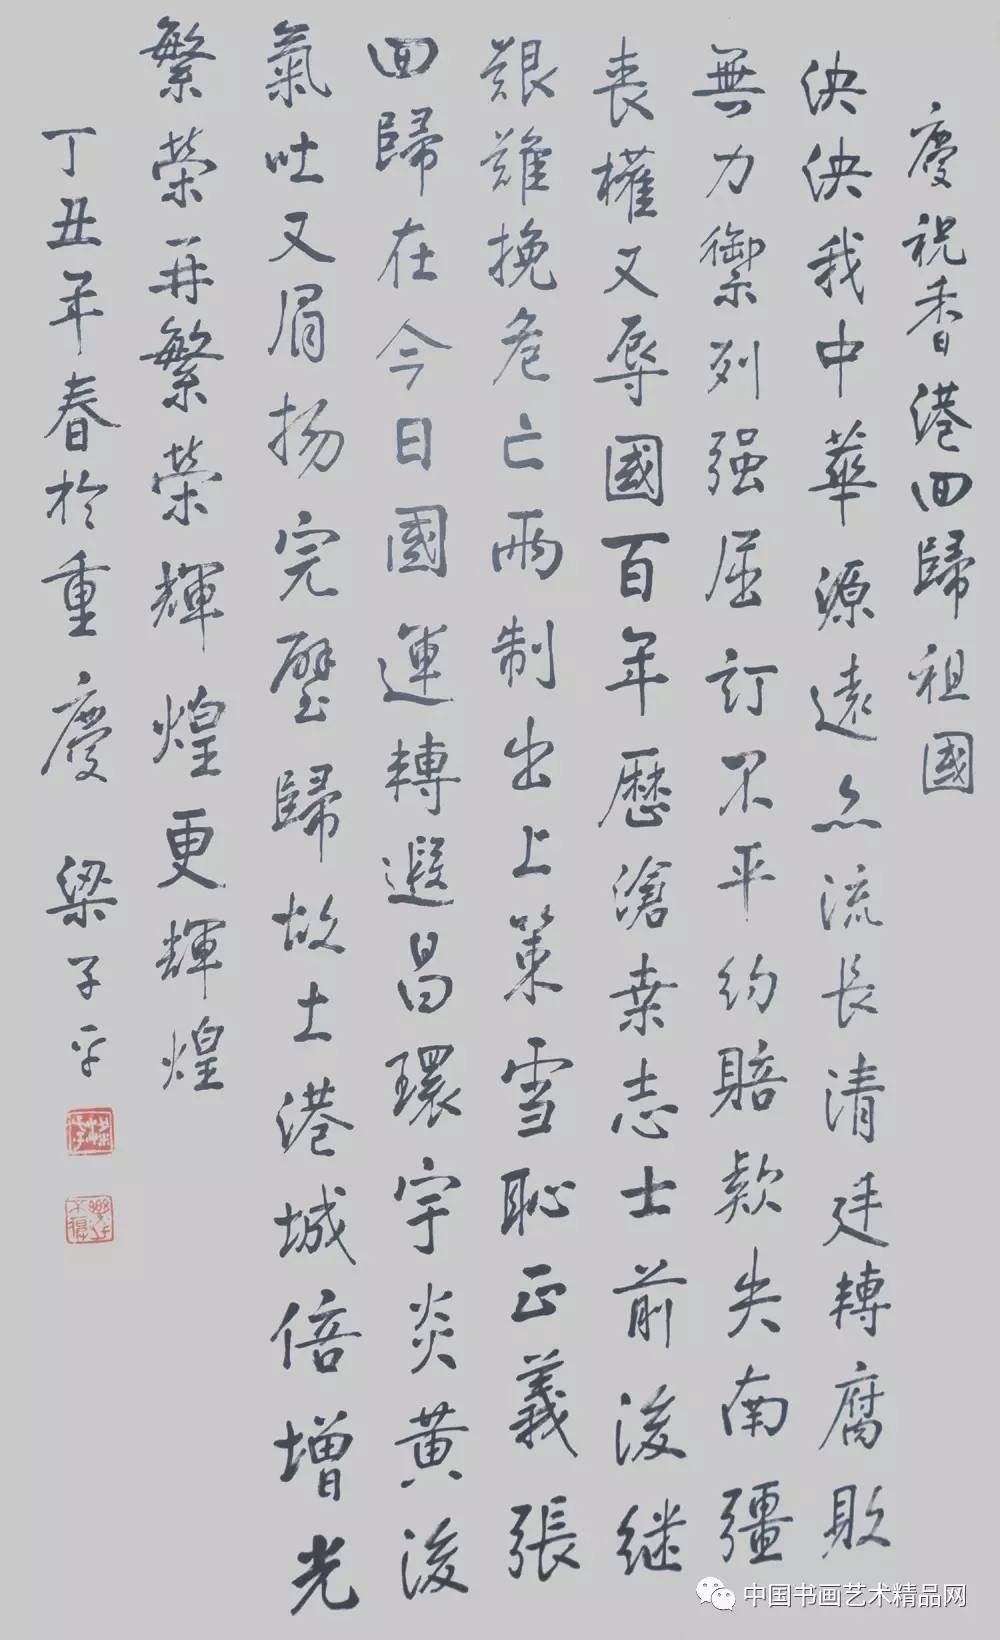 慶祝香港回歸祖國
泱泱我中華源遠亦流長清廷轉腐敗
無力禦列强屈訂不平約賠款失南疆
喪權又辱國百年歷滄桑志士前後继
艱難挽危亡兩制出上策雪恥正義張
回歸在今日國運轉遐昌環宇炎黃後
氣吐又眉扬完璧歸故土港城倍增光
繁榮再繁榮輝煌更輝煌
丁丑年春於重慶 梁子平
中国书画艺术精品网